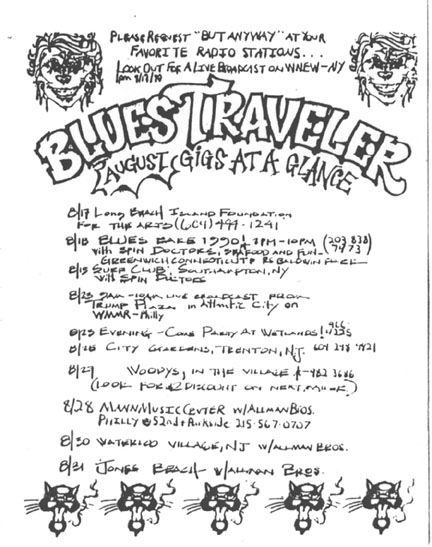 PLEASE REQUEST "BUT ANYWAY" AT YOUR
FAVORITE RADIO STATIONS...
LOOK OUT FOR A LIVE BROADCAST ON WNEW-NY
BLUES TRAVELER
AUGUST GIGS AT A GLANCE
8/17 LONG BEACH ISLAND FOUNDATION
FOR THE ARTS (609) 494-1241
8/18 BLUES BAKE 1990! 1PM-10PM (203 838)
WITH SPIN DOCTORS, SEAFOOD AND FUN-
GREENWICH CONNECTICUT BALDWIN PARK
8/19 SURF CLUB, SOUTHAMPTON, NY
WITH SPIN DOCTORS
8/23 -10AM LIVE BROADCAST FROM
TRUMP PLAZA IN ATLANTIC CITY ON
WMMR-PHILLY
8/23 EVENING - PARTY AT WETLANDS!
CITY GARDENS, TRENTON, N.J.
8/27 WOODYS, IN THE VILLAGE
(LOOK FOR $2 DISCOUNT ON NEXT MAILER)
8/28 MANN MUSIC CENTER W/ALLMAN BROS.
PHILLY @ 52nd & PARKSIDE 215-567-0707
8/30 WATERLOO VILLAGE, NJ W/ALLMAN BROS.
8/31 JONES BEACH W/ALLMAN BROS.